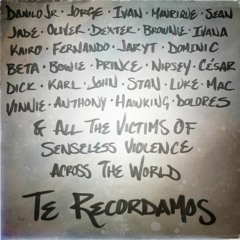 DANILO JR. · JORGE · IVAN · MANRIQUE · SEAN
JADE · OLIVER · DEXTER · BROWNIE · IVANA
KAIRO · FERNANDO · JARYT · DOMINIC
BETA · BOWIE · PRINCE · NIPSEY · CÉSAR
DICK · KARL · JOHN · STAN · LUKE · MAC
VINNIE · ANTHONY · HAWKING · DOLORES
& ALL THE VICTIMS OF
SENSELESS VIOLENCE
ACROSS THE WORLD
TE RECORDAMOS